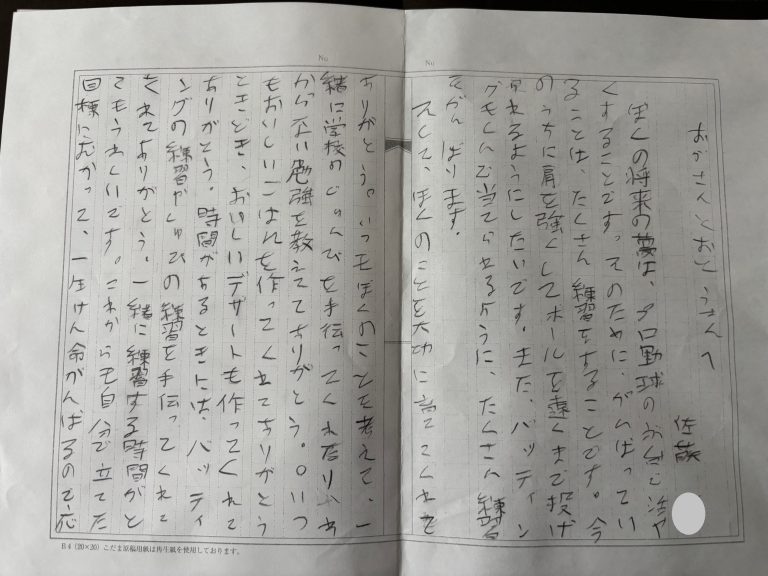 おかあさんとおとうさんへ
佐藤
ぼくの将来の夢は、プロ野球の
くすることです。そのために、がんばってい
ることは、たくさん練習をすることです。今
のうちに肩を強くしてボールを遠くまで投げ
られるようにしたいです。また、バッティン
グもしんで当てられるように、たくさん練習
をがんばります。
そして、ぼくのことを大切に育ててくれて
ありがとう。いつもぼくのことを考えて、一
緒に学校のじゅんびを手伝ってくれたり、
からない勉強を教えてくれてありがとう。いつ
もおいしいごはんを作ってくれてありがとう
ときどき、おいしいデザートも作ってくれて
ありがとう。時間があるときには、バッティ
ングの練習やしゅびの練習を手伝ってくれて
くれてありがとう。一緒に練習する時間がと
てもうれしいです。これからも自分で立てた
目標にむかって、一生けん命がんばるので応
B4(20×20)こだま原稿用紙は再生紙を使用しております。
No
No